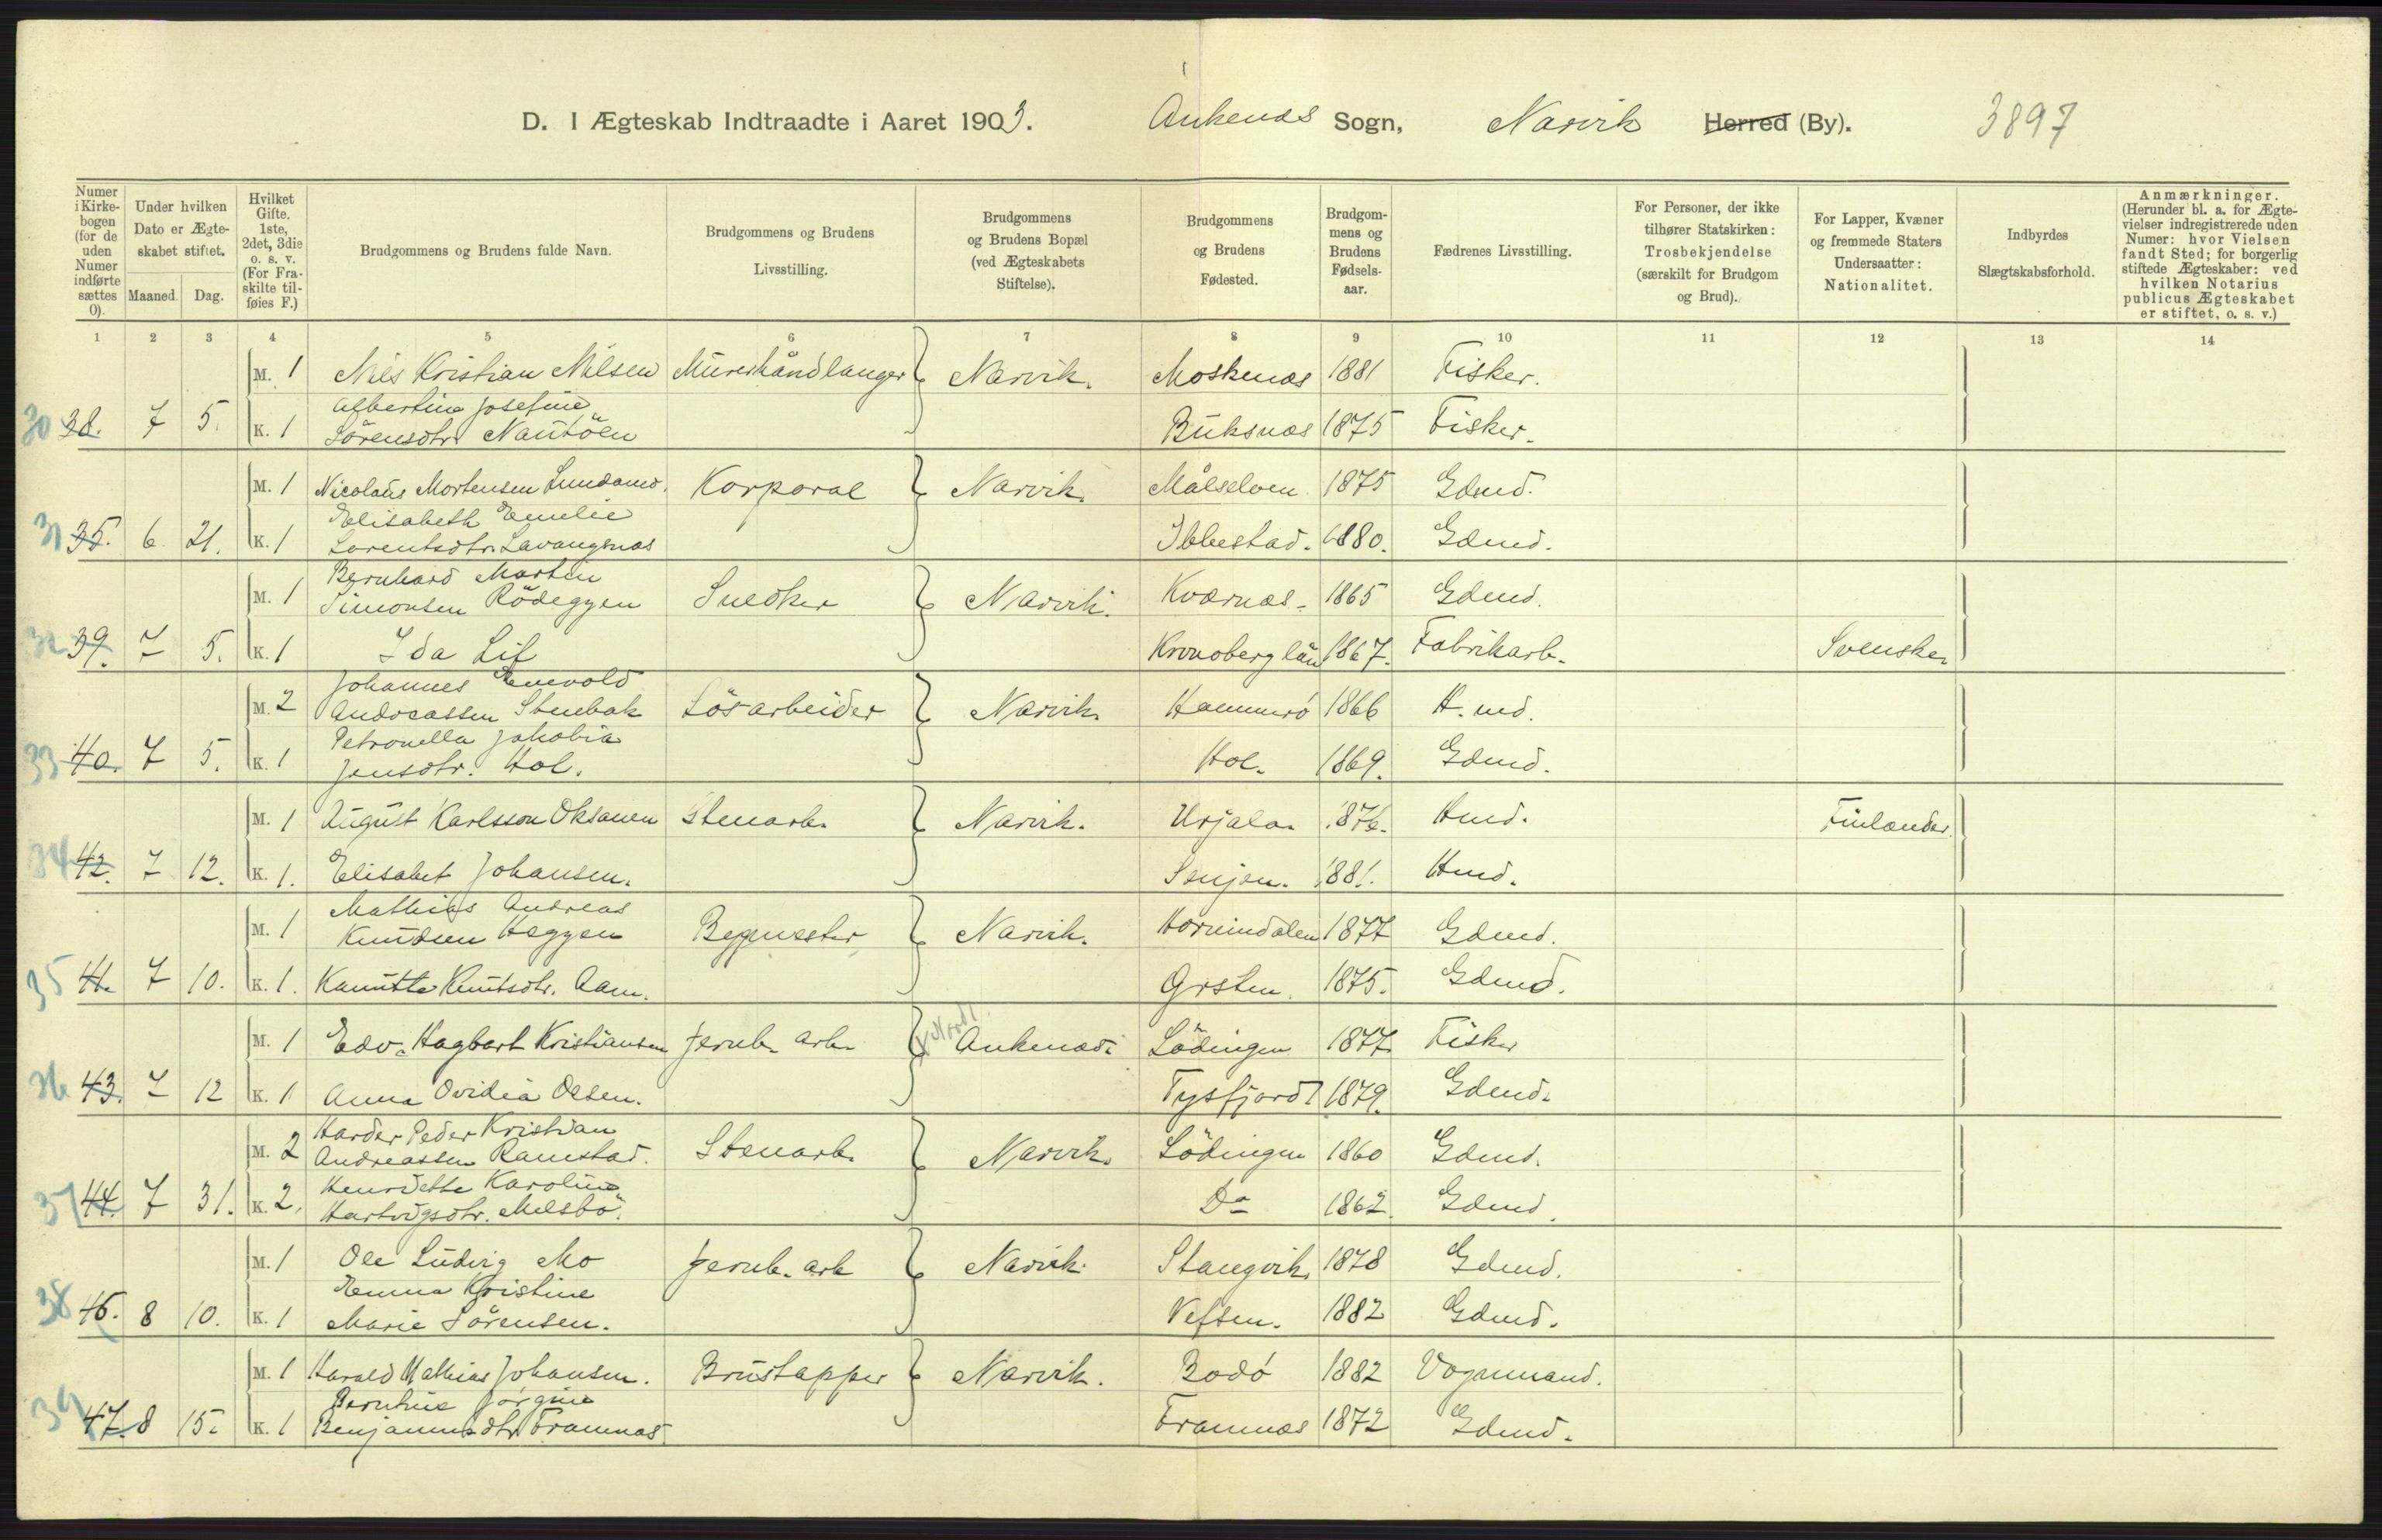 D. I Ægteskab Indtraadte i Aaret 1903. Ankenæs Sogn, Narvik Herred (By). 3897
Numer i Kirke- bogen (for de uden Numer indførte sættes 0).
Under hvilken Dato er Ægte- skabet stiftet.
Maaned. Dag.
Hvilket Gifte. 1ste, 2det, 3die o. s. v. (For Fra- skilte til- føies F.)
Brudgommens og Brudens fulde Navn.
Brudgommens og Brudens Livsstilling.
Brudgommens og Brudens Bopæl (ved Ægteskabets Stiftelse).
Brudgommens og Brudens Fødested.
Brudgom- mens og Brudens Fødsels- aar.
Fædrenes Livsstilling.
For Personer, der ikke tilhører Statskirken: Trosbekjendelse (særskilt for Brudgom og Brud).
For Lapper, Kvæner og fremmede Staters Undersaatter: Nationalitet.
Indbyrdes Slægtskabsforhold.
Anmærkninger. (Herunder bl. a. for Ægte- vielser indregistrerede uden Numer: hvor Vielsen fandt Sted; for borgerlig stiftede Ægteskaber: ved hvilken Notarius publicus Ægteskabet er stiftet, o. s. v.)
1 2 3 4 5 6 7 8 9 10 11 12 13 14
M. 1 Nils Kristian Nilsen Murerhåndlanger Narvik. Moskenæs 1881 Fisker.
Albertine Josefine
30 38. 7 5. K. 1 Sörensdtr. Buksnæs 1875 Fisker.
M. 1 Nicolaus Mortensen Korporal Narvik. Målselven 1875 Gdmd.
Elisabeth Emelie
31 35. 6. 21. K. 1 Lorentsdtr. Lavangsnæs Ibbestad. 1880. Gdmd.
Bernhard Martin
M. 1 Simonsen Rödeggen Snedker Narvik. Kværnæs. 1865 Gdmd.
32 39. 7 5. K. 1 Ida Lif Kronoberg län 1867. Fabrikarb. Svensk.
Johannes Enevold
M. 2 Andreassen Stenbak Lösarbeider Narvik. Hammerö 1866 H. md.
Petronella Jakobia
33 40. 7 5. K. 1 Jensdtr. Hol. Hol. 1869. Gdmd.
M. 1 August Karlsson Oksanen Stenarb. Narvik. Urjala. 1876. Hmd. Finlænder.
34 42. 7 12. K. 1. Elisabet Johansen. Senjen. 1881. Hmd.
Mathias Andreas
M. 1 Knudsen Heggen Narvik. Hornindalen 1877 Gdmd.
35 41. 7 10. K. 1. Knutsdtr. Aam. Ørsten. 1875. Gdmd.
M. 1 Edv. Hagbart Kristiansen Jernb. arb. Ankenæs. Lödingen 1877. Fisker
36 43. 7 12 K. 1 Anna Ovidia Olsen. Tysfjord 1879. Gdmd.
Harder Peder Kristian
M. 2 Andreassen Ramstad. Stenarb. Narvik. Lödingen 1860 Gdmd.
Henriette Karoline
37 44. 7 31. K. 2. Hartvigsdtr. Melsbö. Do 1862. Gdmd.
M. 1 Ole Ludvig Mo Jernb. arb Narvik. Stangvik. 1878 Gdmd.
Emma Kristine
38 46. 8 10. K. 1 Marie Sörensen. Vefsen. 1882 Gdmd.
M. 1 Harald Mathias Johansen. Brustapper Narvik. Bodö 1882 Vognmand.
Jörgine
39 47. 8 15. K. 1 Framnæs. Framnæs 1872 Gdmd.